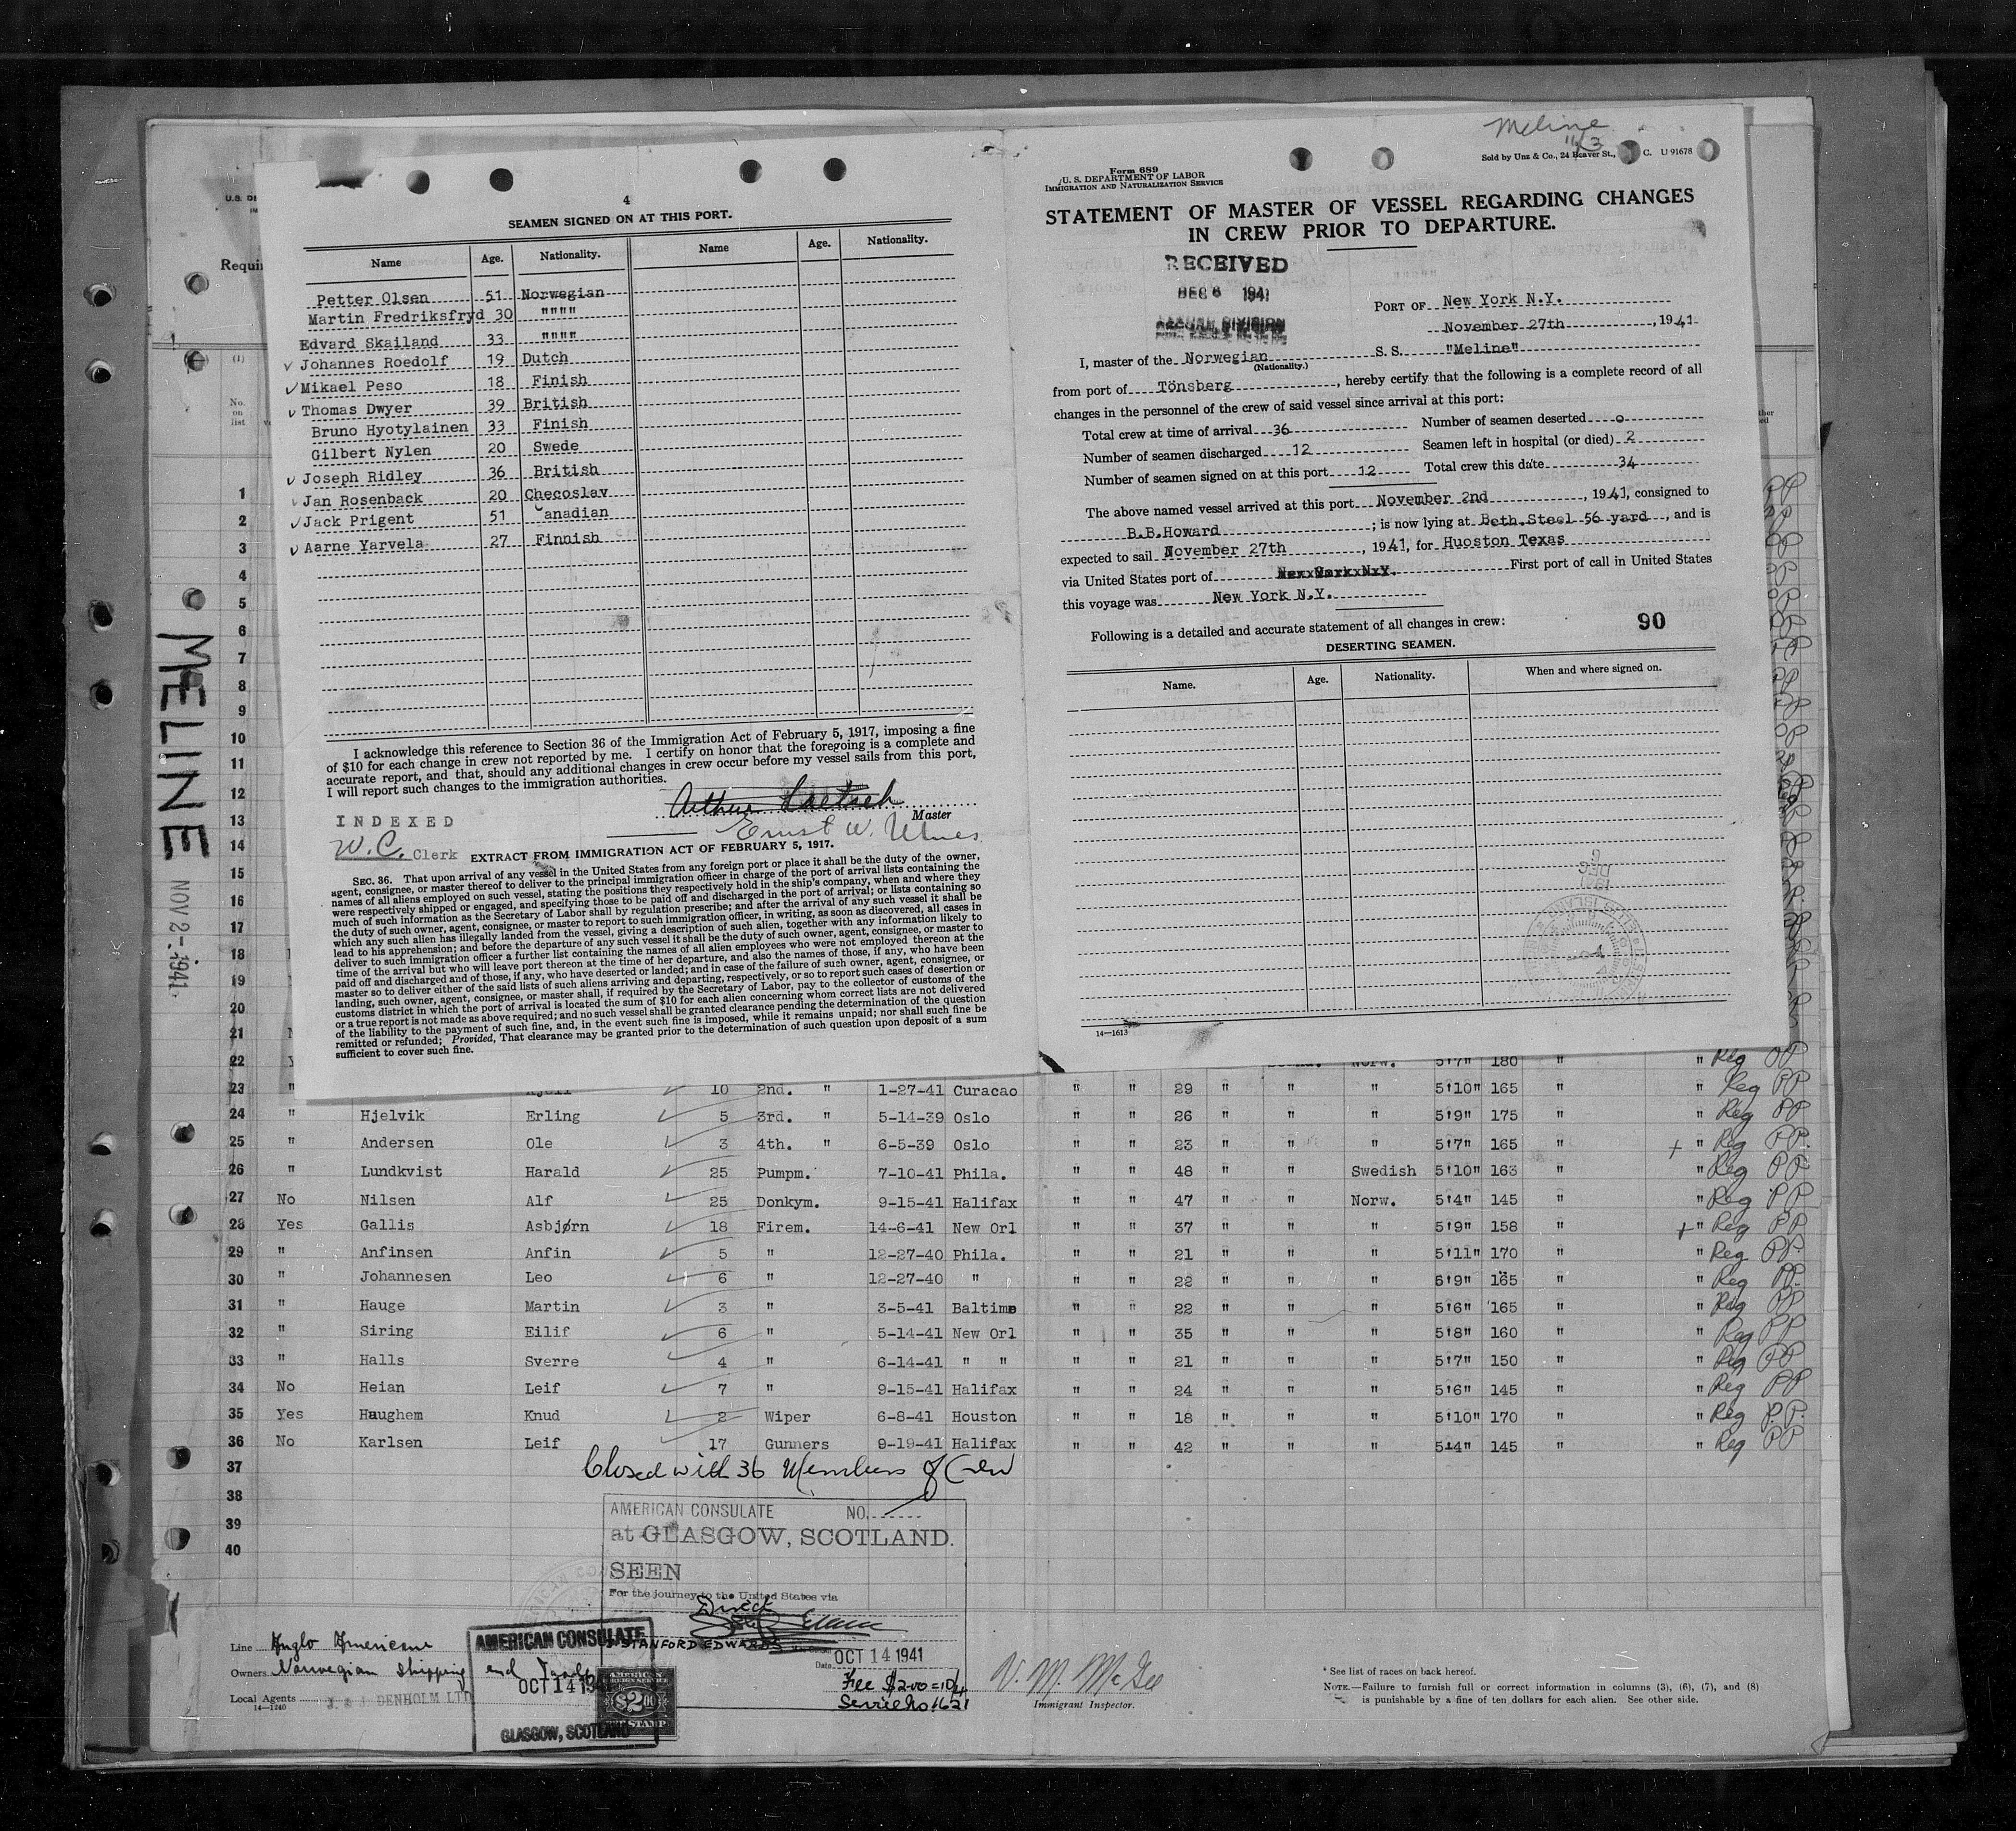 4
SEAMEN SIGNED ON AT THIS PORT.
Name Age. Nationality. Name Age. Nationality.
Petter Olsen 51 Norwegian
Martin Fredriksfryd 30 """"
Edvard Skailand 33 """"
✓ Johannes Roedolf 19 Dutch
✓ Mikael Peso 18 Finish
✓ Thomas Dwyer 39 British
Bruno Hyotylainen 33 Finish
Gilbert Nylen 20 Swede
✓ Joseph Ridley 36 British
✓ Jan Rosenback 20 Checoslav
✓ Jack Prigent 51 Canadian
✓ Aarne Yarvela 27 Finnish
I acknowledge this reference to Section 36 of the Immigration Act of February 5, 1917, imposing a fine
of $10 for each change in crew not reported by me. I certify on honor that the foregoing is a complete and
accurate report, and that, should any additional changes in crew occur before my vessel sails from this port,
I will report such changes to the immigration authorities.
Arthur
Master
INDEXED
Ernst W. Ulmes
W.C. Clerk
EXTRACT FROM IMMIGRATION ACT OF FEBRUARY 5, 1917.
SEC. 36. That upon arrival of any vessel in the United States from any foreign port or place it shall be the duty of the owner,
agent, consignee, or master thereof to deliver to the principal immigration officer in charge of the port of arrival lists containing the
names of all aliens employed on such vessel, stating the positions they respectively hold in the ship's company, when and where they
were respectively shipped or engaged, and specifying those to be paid off and discharged in the port of arrival; or lists containing so
much of such information as the Secretary of Labor shall by regulation prescribe; and after the arrival of any such vessel it shall be
the duty of such owner, agent, consignee, or master to report to such immigration officer, in writing, as soon as discovered, all cases in
which any such alien has illegally landed from the vessel, giving a description of such alien, together with any information likely to
lead to his apprehension; and before the departure of any such vessel it shall be the duty of such owner, agent, consignee, or master to
deliver to such immigration officer a further list containing the names of all alien employees who were not employed thereon at the
time of the arrival but who will leave port thereon at the time of her departure, and also the names of those, if any, who have been
paid off and discharged and of those, if any, who have deserted or landed; and in case of the failure of such owner, agent, consignee, or
master so to deliver either of the said lists of such aliens arriving and departing, respectively, or so to report such cases of desertion or
landing, such owner, agent, consignee, or master shall, if required by the Secretary of Labor, pay to the collector of customs of the
customs district in which the port of arrival is located the sum of $10 for each alien concerning whom correct lists are not delivered
or a true report is not made as above required; and no such vessel shall be granted clearance pending the determination of the question
of the liability to the payment of such fine, and, in the event such fine is imposed, while it remains unpaid; nor shall such fine be
remitted or refunded; Provided, That clearance may be granted prior to the determination of such question upon deposit of a sum
sufficient to cover such fine.
Meline
11/3
Sold by Unz & Co., 24 Beaver St., C. U 91678
Form 689
U. S. DEPARTMENT OF LABOR
IMMIGRATION AND NATURALIZATION SERVICE
STATEMENT OF MASTER OF VESSEL REGARDING CHANGES
IN CREW PRIOR TO DEPARTURE.
RECEIVED
DEC 6 1941
DIVISION
PORT OF New York N.Y.
November 27th, 1941
I, master of the Norwegian S. S. "Meline"
(Nationality.)
from port of Tönsberg, hereby certify that the following is a complete record of all
changes in the personnel of the crew of said vessel since arrival at this port:
Total crew at time of arrival 36 Number of seamen deserted o
Number of seamen discharged 12 Seamen left in hospital (or died) 2
Number of seamen signed on at this port 12 Total crew this date 34
The above named vessel arrived at this port November 2nd, 1941, consigned to
B.B.Howard; is now lying at Beth.Steel 56 yard, and is
expected to sail November 27th, 1941, for Huoston Texas
via United States port of New York N.Y. First port of call in United States
this voyage was New York N.Y.
Following is a detailed and accurate statement of all changes in crew: 90
DESERTING SEAMEN.
Name. Age. Nationality. When and where signed on.
1941
DEC 6
14—1613
U.S. DE
Requir
(1)
No. on list
MELINE
NOV 2-1941
1
2
3
4
5
6
7
8
9
10
11
12
13
14
15
16
17
18
19
20
21
22 Norw. 5'7" 180 " " Reg PP
23 " 10 2nd. " 1-27-41 Curacao " " 29 " " " 5'10" 165 " " Reg PP
24 " Hjelvik Erling 5 3rd. " 5-14-39 Oslo " " 26 " " " 5'9" 175 " " Reg PP
25 " Andersen Ole 3 4th. " 6-5-39 Oslo " " 23 " " " 5'7" 165 " + " Reg PP.
26 " Lundkvist Harald 25 Pumpm. 7-10-41 Phila. " " 48 " " Swedish 5'10" 163 " " Reg PP
27 No Nilsen Alf 25 Donkym. 9-15-41 Halifax " " 47 " " Norw. 5'4" 145 " " Reg PP
28 Yes Gallis Asbjørn 18 Firem. 14-6-41 New Orl " " 37 " " " 5'9" 158 " + " Reg PP
29 " Anfinsen Anfin 5 " 12-27-40 Phila. " " 21 " " " 5'11" 170 " " Reg PP.
30 " Johannesen Leo 6 " 12-27-40 " " " 22 " " " 6'9" 165 " " Reg PP.
31 " Hauge Martin 3 " 3-5-41 Baltime " " 22 " " " 5'6" 165 " " Reg PP
32 " Siring Eilif 6 " 5-14-41 New Orl " " 35 " " " 5'8" 160 " " Reg PP
33 " Halls Sverre 4 " 6-14-41 " " " " 21 " " " 5'7" 150 " " Reg PP
34 No Heian Leif 7 " 9-15-41 Halifax " " 24 " " " 5'6" 145 " " Reg PP
35 Yes Haughem Knud 2 Wiper 6-8-41 Houston " " 18 " " " 5'10" 170 " " Reg P.P.
36 No Karlsen Leif 17 Gunners 9-19-41 Halifax " " 42 " " " 5'4" 145 " " Reg PP
37 Closed with 36 Members of Crew
38
39
40
AMERICAN CONSULATE NO.
at GLASGOW, SCOTLAND.
SEEN
For the journey to the United States via
Direct
STANFORD EDWARDS
Date OCT 14 1941
Fee $2.00 = 10/4
Service No 1621
Line Anglo American
Owners Norwegian Shipping and Trade
Local Agents J. & J. DENHOLM LTD
14—1240
AMERICAN CONSULATE
OCT 14 194
GLASGOW, SCOTLAND
AMERICAN
FOREIGN SERVICE
$2.00
FEE STAMP
V. M. McGee
Immigrant Inspector.
* See list of races on back hereof.
NOTE.—Failure to furnish full or correct information in columns (3), (6), (7), and (8)
is punishable by a fine of ten dollars for each alien. See other side.